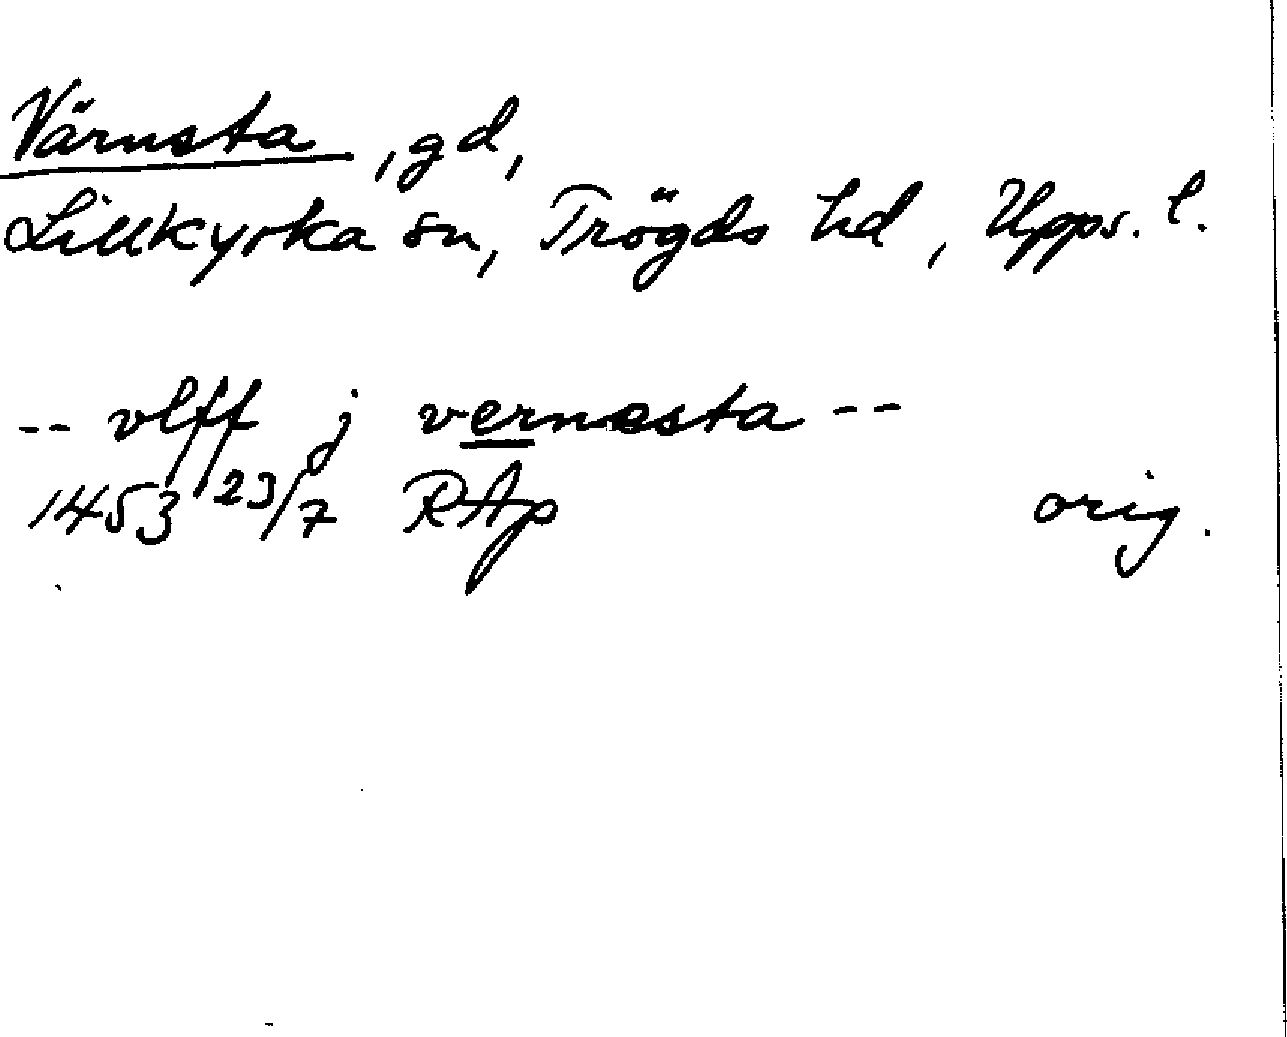 Värnsta, gd,
Lillkyrka sn, Trögds hd, Upps. l.
-- vlff j vernesta --
1453 23/7 RAp orig.